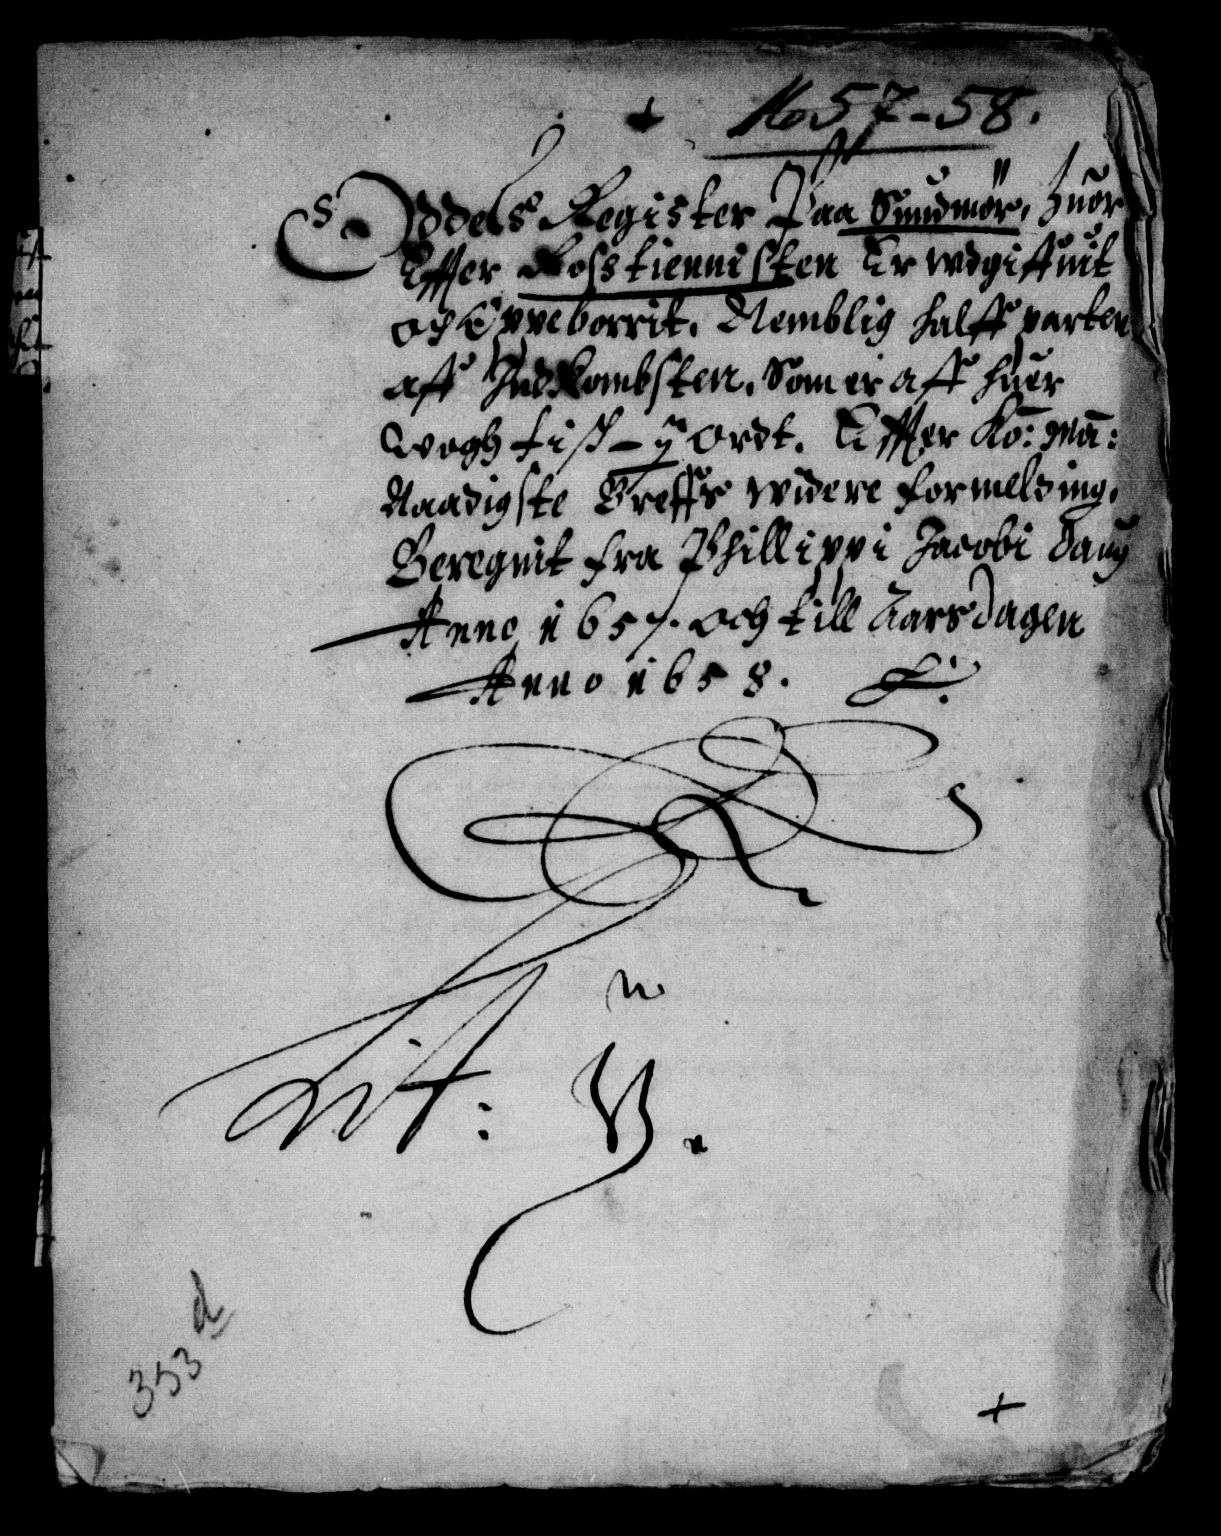 Ao 57-58.
Oddels Register Paa Sundmør, huor
Effter Rosstiennisten Er wdgiffuit
och Oppeborrit, Nemblig halff parten
aff Indkombsten, Som er aff huer
wogh fisk - ij ordt. Effter Ko: Ma:
Naadigste Breffs widere formelding,
Beregnit fra Phillippi Jacobi Daug
Anno 1657. och till Aarsdagen
Anno 1658.
Lit: B.
353 d